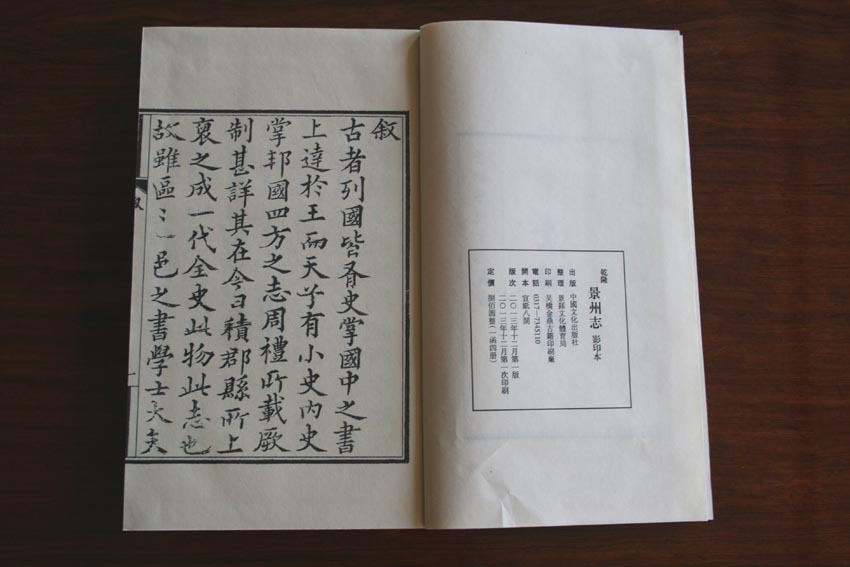 叙
古者列國皆有史掌國中之書
上達於王而天子有小史內史
掌邦國四方之志周禮所載厥
制甚詳其在今日積郡縣所上
裒之成一代全史此物此志也
故雖區〻一邑之書學士大夫
叙
一
乾隆 景州志 影印本
出版 中國文化出版社
整理 景縣文化體育局
印刷 吴橋金鼎古籍印刷廠
電話 0317—7345110
開本 宣紙八開
版次 二〇一三年十二月第一版
二〇一三年十二月第一次印刷
定價 捌佰圆整(一函四册)